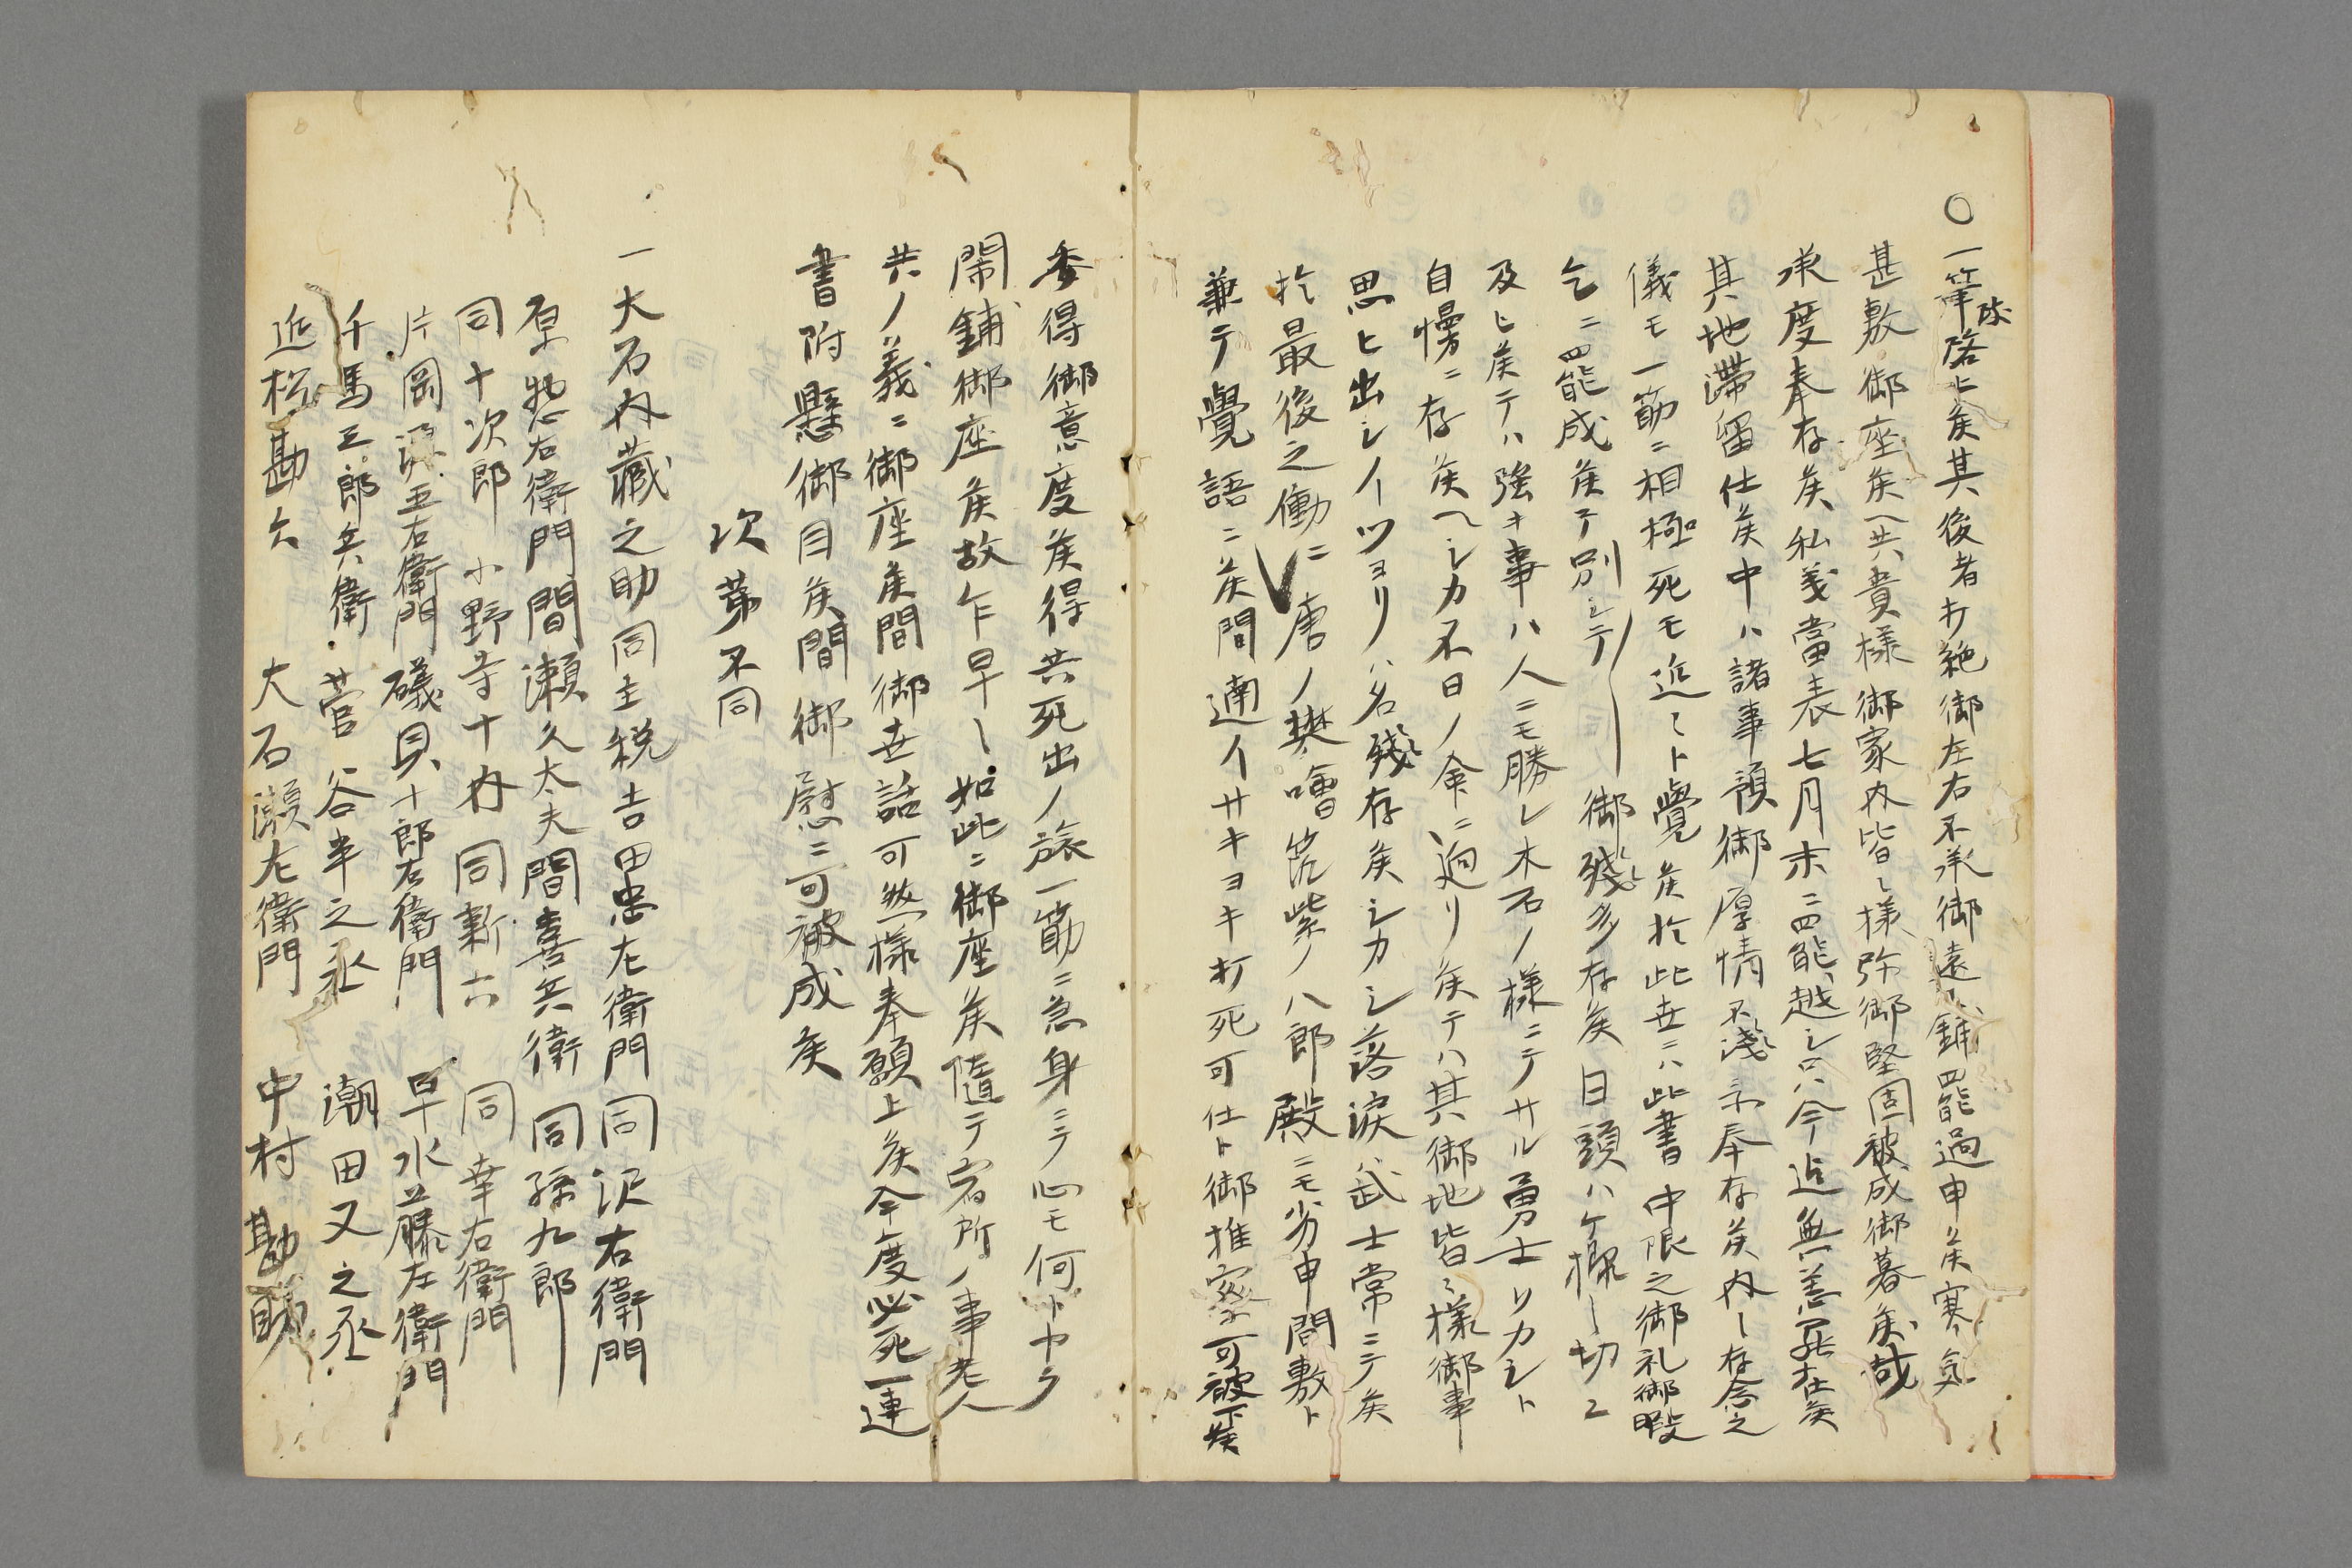 〇一筆啓上候其後者打絶御左右不承御遠〻鋪罷過申候寒気
甚敷御座候ヘ共貴様御家内皆〻様弥御堅固被成御暮候哉
承度奉存候私義當表七月末ニ罷越シ只今迄無恙罷在候
其地滞留仕候中ハ諸事預御厚情不浅忝奉存候内〻存念之
儀モ一筋ニ相極死モ近〻ト覺候於此世ニハ此書中限之御礼御暇
乞ニ罷成候了別シテ〳〵御残多存候日頭ハケ様〻切ニ
及ヒ候テハ強キ事ハ人ニモ勝レ木石ノ様ニテサル勇士リカシト
自慢ニ存候ヘシカ不日ノ命ニ廻リ候テハ其御地皆〻様御事
思ヒ出シイツヨリハ名残存候シカシ落涙武士常ニテ候
於最後之働ニ唐ノ樊噲筑紫ノ八郎殿ニモ劣申間敷ト
兼テ覺語ニ候間遖イサキヨキ打死可仕ト御推察可被下候
委得御意度候得共死出ノ旅一筋ニ急身ニテ心モ何トヤラ
閙鋪御座候故乍早〻如此ニ御座候随テ宿所ノ事老人
共ノ義ニ御座候間御世話可然様奉願上候今度必死一連
書附懸御目候間御慰ニ可被成候
次第不同
一大石内蔵之助同主税吉田忠左衛門同沢右衛門
原惣右衛門間瀬久太夫間喜兵衛同孫九郎
同十次郎小野寺十内同新六同幸右衛門
片岡源五右衛門礒貝十郎右衛門早水藤左衛門
千馬三郎兵衛菅谷半之丞潮田又之丞
近松勘六大石瀬左衛門中村勘助